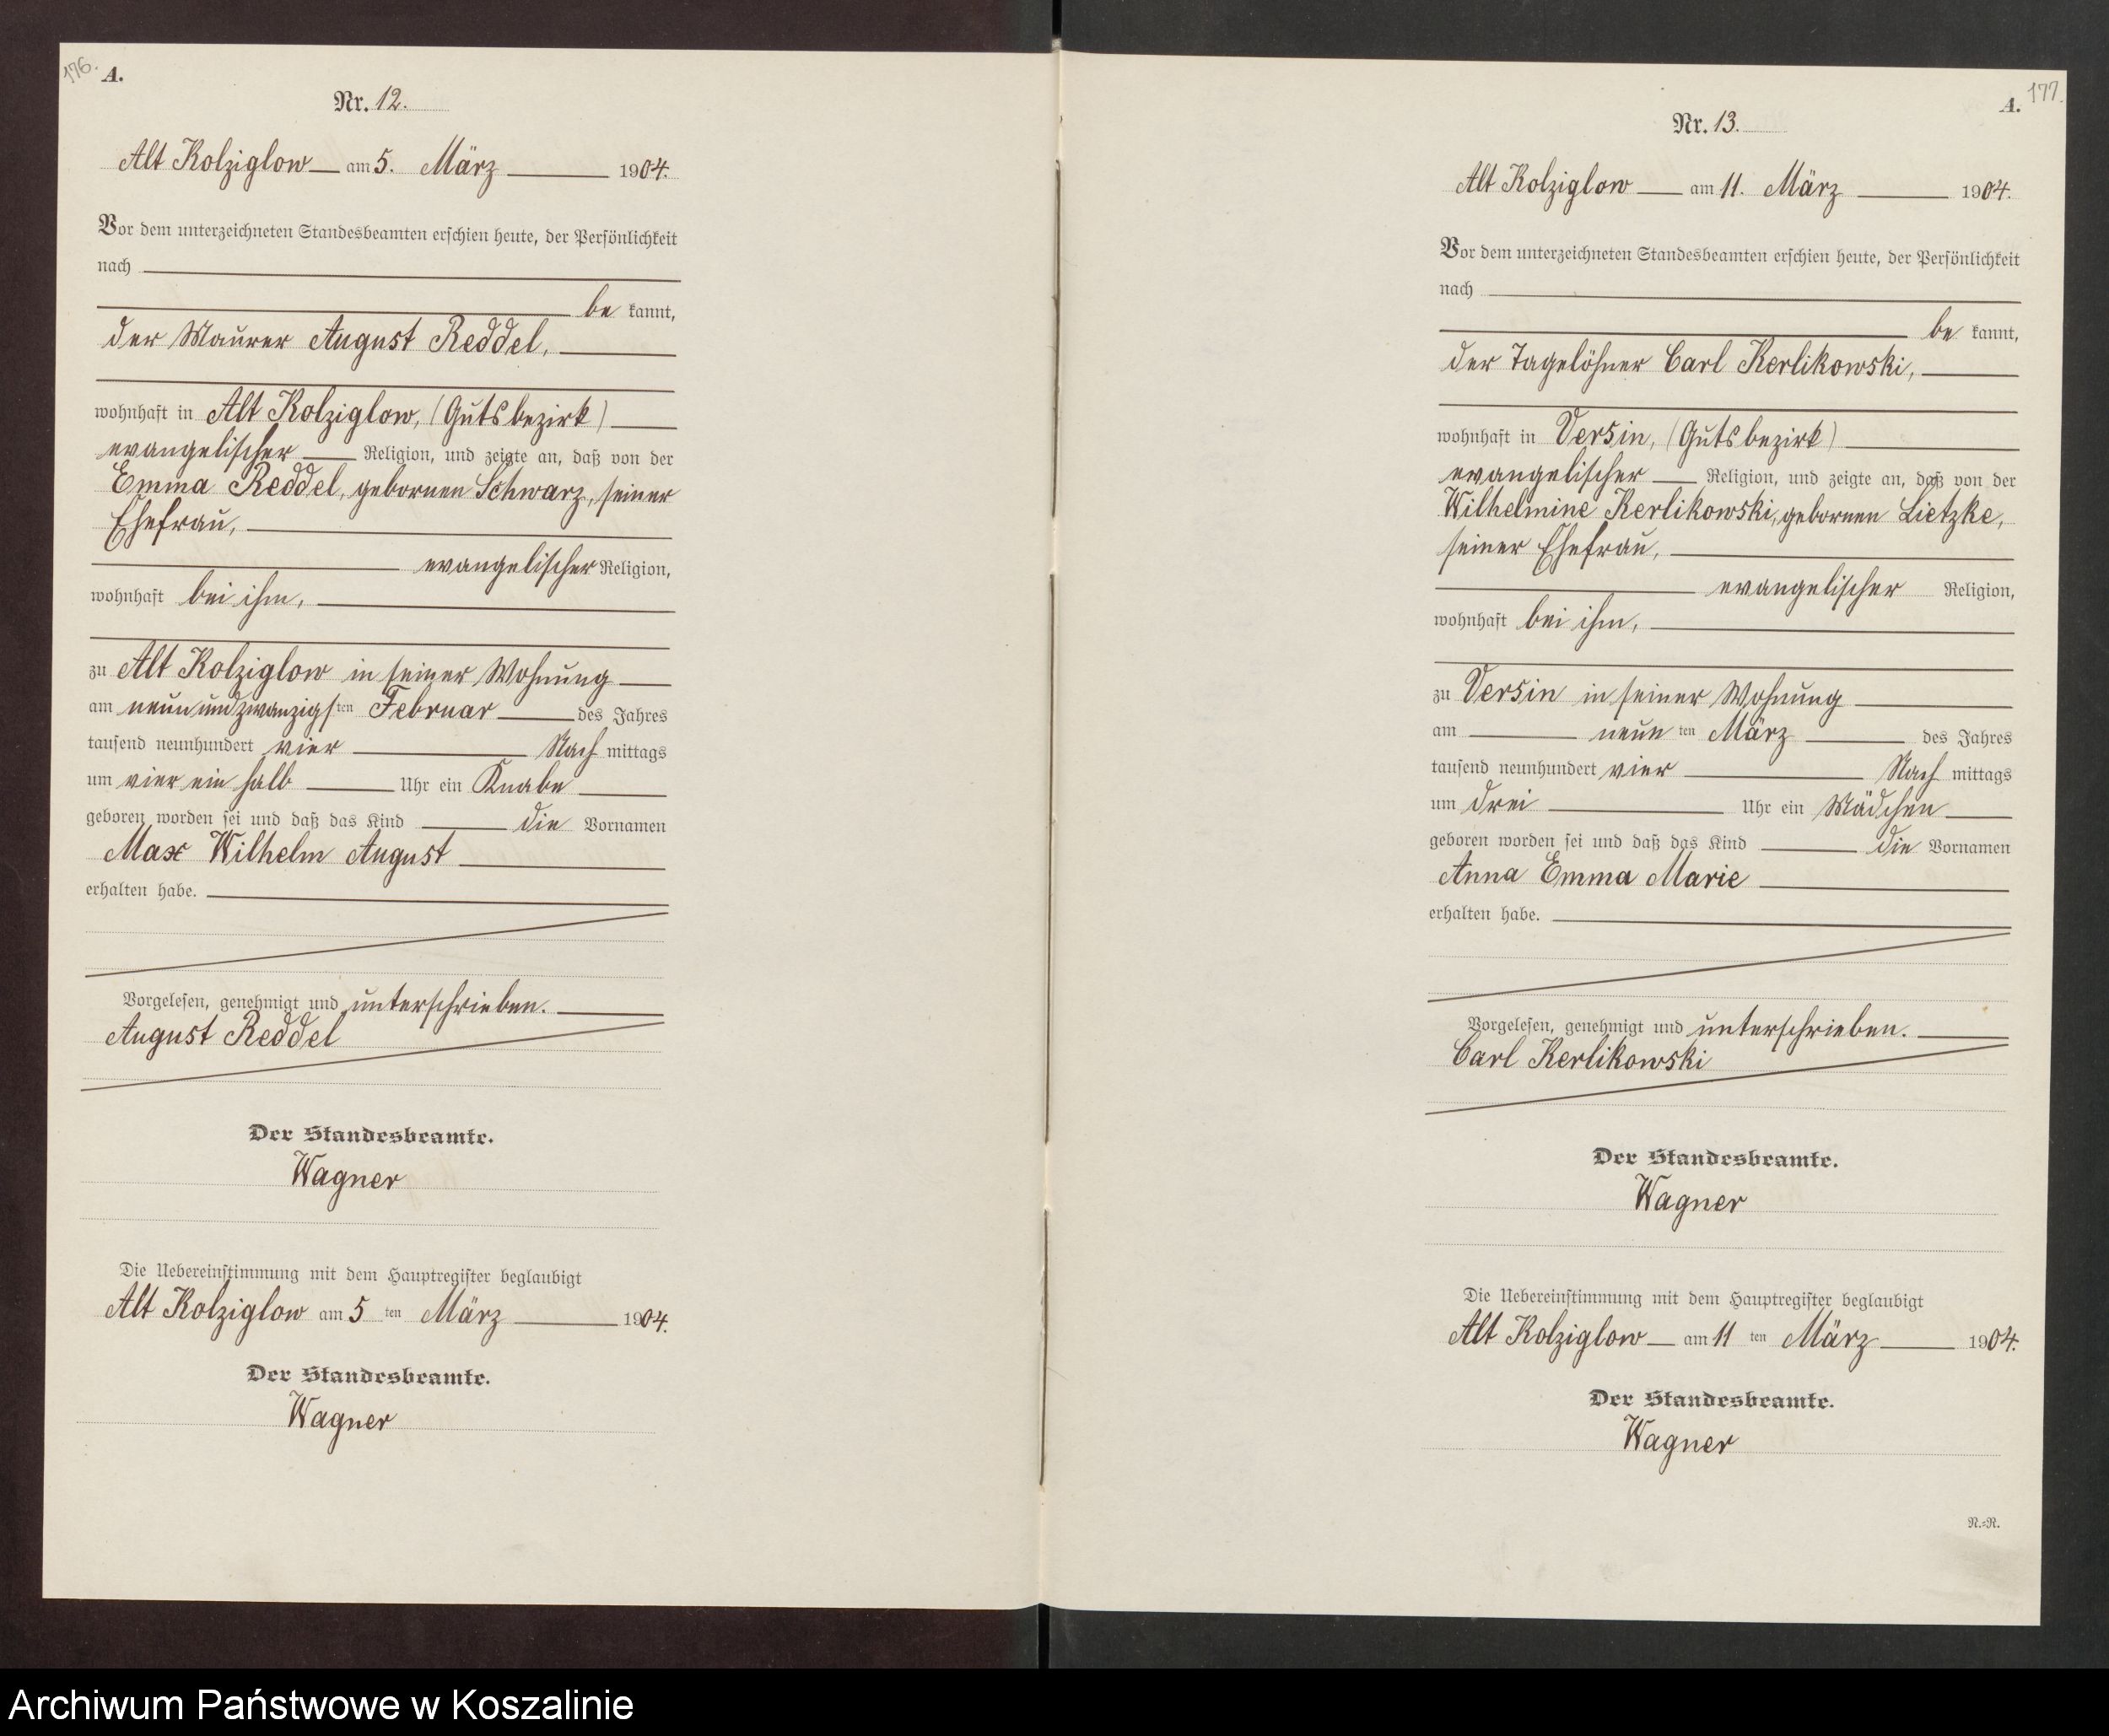 176.
A.
Nr. 12.
Alt Kolziglow am 5. März 1904.
Vor dem unterzeichneten Standesbeamten erschien heute, der Persönlichkeit
nach
be kannt,
der Maurer August Reddel,
wohnhaft in Alt Kolziglow, (Gutsbezirk)
evangelischer Religion, und zeigte an, daß von der
Emma Reddel, gebornen Schwarz, seiner
Ehefrau,
evangelischer Religion,
wohnhaft bei ihm,
zu Alt Kolziglow in seiner Wohnung
am neunundzwanzigsten Februar des Jahres
tausend neunhundert vier Nach mittags
um vier ein halb Uhr ein Knabe
geboren worden sei und daß das Kind die Vornamen
Max Wilhelm August
erhalten habe.
Vorgelesen, genehmigt und unterschrieben.
August Reddel
Der Standesbeamte.
Wagner
Die Uebereinstimmung mit dem Hauptregister beglaubigt
Alt Kolziglow am 5 ten März 1904.
Der Standesbeamte.
Wagner
177.
A.
Nr. 13.
Alt Kolziglow am 11. März 1904.
Vor dem unterzeichneten Standesbeamten erschien heute, der Persönlichkeit
nach
be kannt,
der Tagelöhner Carl Kerlikowski,
wohnhaft in Versin, (Gutsbezirk)
evangelischer Religion, und zeigte an, daß von der
Wilhelmine Kerlikowski, gebornen Lietzke,
seiner Ehefrau,
evangelischer Religion,
wohnhaft bei ihm,
zu Versin in seiner Wohnung
am neun ten März des Jahres
tausend neunhundert vier Nach mittags
um drei Uhr ein Mädchen
geboren worden sei und daß das Kind die Vornamen
Anna Emma Marie
erhalten habe.
Vorgelesen, genehmigt und unterschrieben.
Carl Kerlikowski
Der Standesbeamte.
Wagner
Die Uebereinstimmung mit dem Hauptregister beglaubigt
Alt Kolziglow am 11 ten März 1904.
Der Standesbeamte.
Wagner
N.=R.
Archiwum Państwowe w Koszalinie